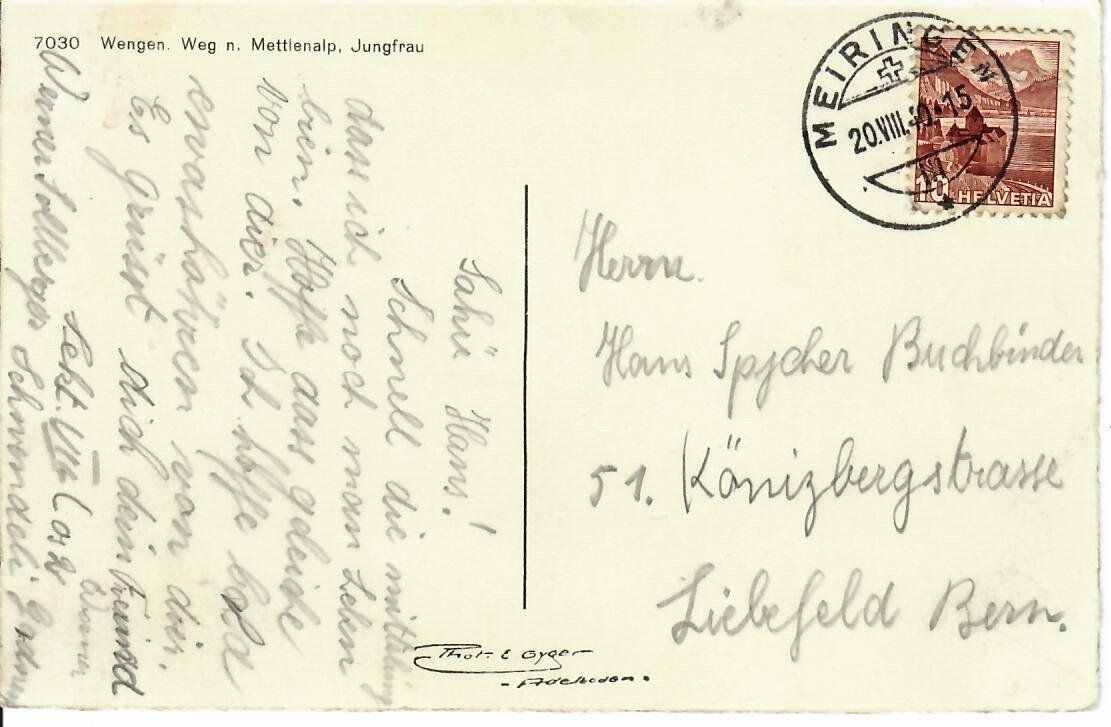 7030 Wengen. Weg n. Mettlenalp, Jungfrau
MEIRINGEN
20.VIII.40. 15
10 HELVETIA
Sahü Hans!
Schnell die mitteilung
dass ich noch man Leben
bin. Hoffe dass gleiche
von dier. Ich hoffe bald
erwas hören von dir.
Es grüsst dich dein Freund
Werner
Sekt. VIII
Werner Schwendeli
Herrn.
Hans Spycher Buchbinder
51. Könizbergstrasse
Liebefeld Bern.
Phot. E Gyger
- Adelboden.